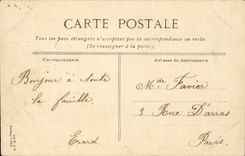 CARTE POSTALE
Tous les pays étrangers n'acceptent pas la correspondance au recto.
(Se renseigner à la poste.)
Correspondance
Adresse du destinataire
Bonjour à toute
la famille
Erard
Mr Favier
3 Rue D'arras
Paris.